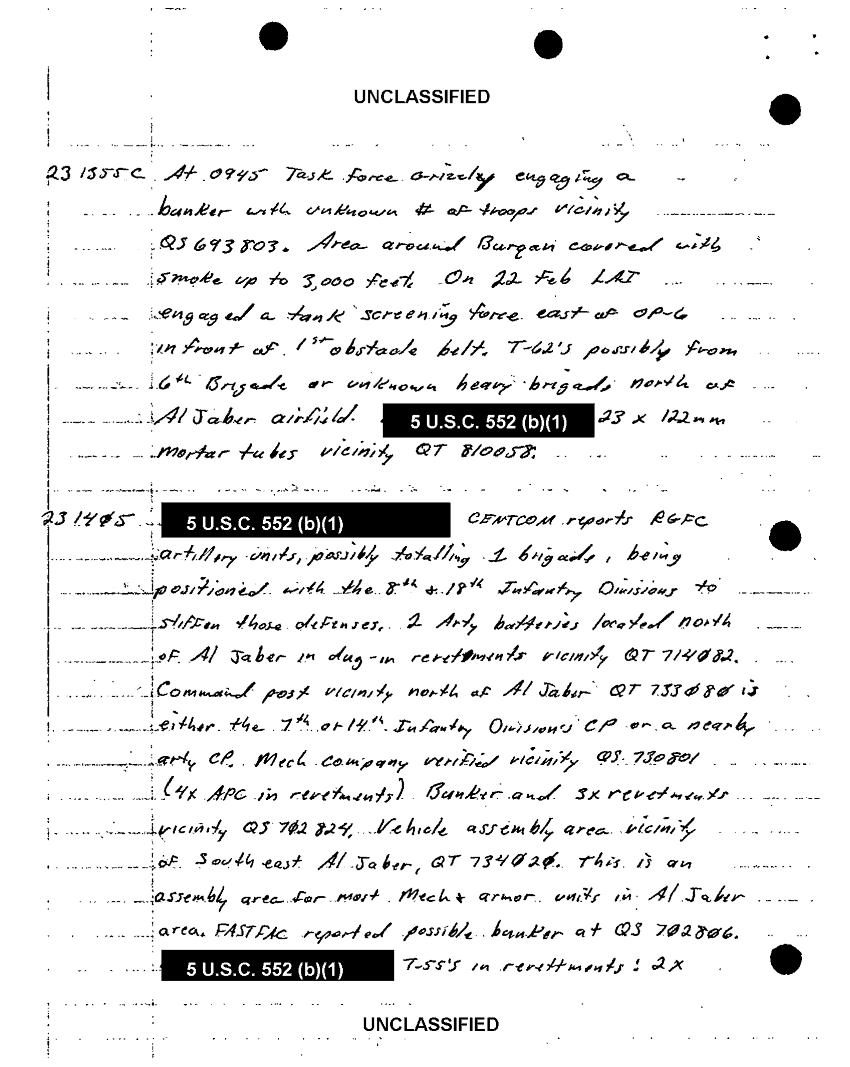 UNCLASSIFIED
23 1355C At 0945 Task Force Grizzly engaging a
bunker with unknown # of troops vicinity
QS 693803. Area around Burgan covered with
smoke up to 3,000 feet. On 22 Feb LAI
engaged a tank screening force east of OP-6
in front of 1st obstacle belt. T-62's possibly from
6th Brigade or unknown heavy brigade north of
Al Jaber airfield. 5 U.S.C. 552 (b)(1) 23 x 122mm
mortar tubes vicinity QT 810058.
23 14Ø5 5 U.S.C. 552 (b)(1) CENTCOM reports RGFC
artillery units, possibly totalling 1 brigade, being
positioned with the 8th & 18th Infantry Divisions to
stiffen those defenses. 2 Arty batteries located north
of Al Jaber in dug-in revetments vicinity QT 714Ø82.
Command post vicinity north of Al Jaber QT 733Ø8Ø is
either the 7th or 14th Infantry Division's CP or a nearby
arty CP. Mech company verified vicinity QS 730801
(4x APC in revetments) Bunker and 3x revetments
vicinity QS 702 824. Vehicle assembly area vicinity
of South east Al Jaber, QT 734Ø2Ø. This is an
assembly area for most Mech & armor units in Al Jaber
area. FASTFAC reported possible bunker at QS 7Ø28Ø6.
5 U.S.C. 552 (b)(1) T-55's in revettments : 2 X
UNCLASSIFIED